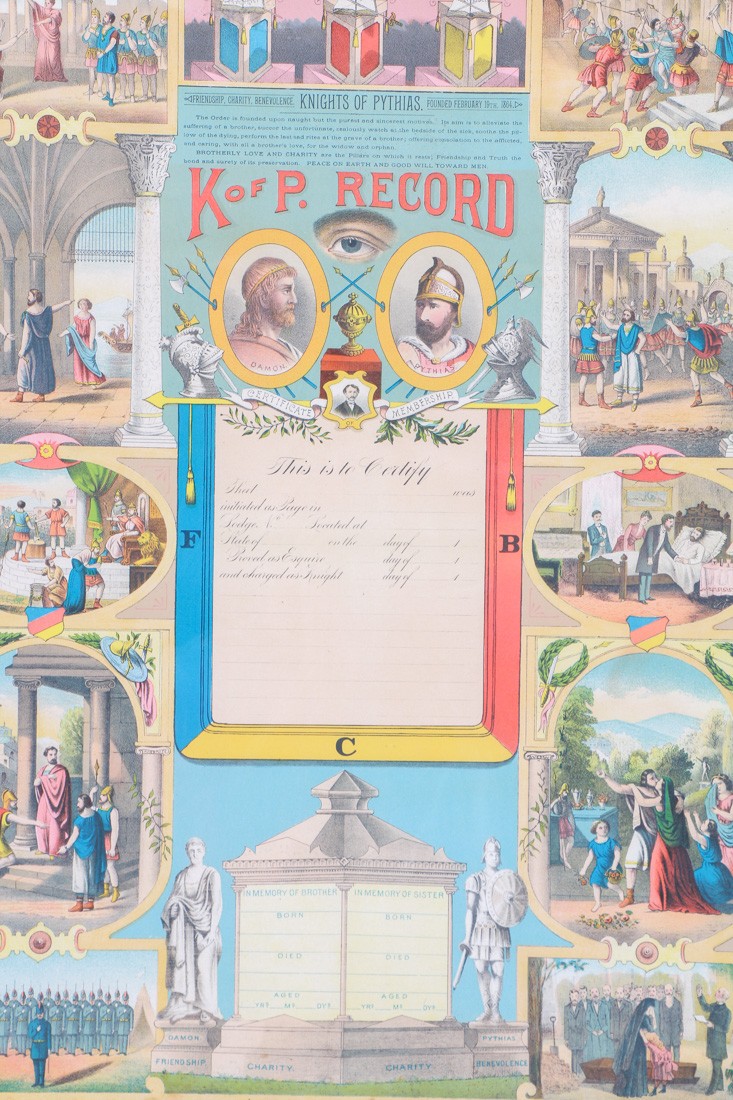 FRIENDSHIP, CHARITY, BENEVOLENCE. KNIGHTS OF PYTHIAS. FOUNDED FEBRUARY 19TH, 1864.
The Order is founded upon naught but the purest and sincerest motives. Its aim is to alleviate the
suffering of a brother, succor the unfortunate, zealously watch at the bedside of the sick, soothe the pil-
low of the dying, perform the last sad rites at the grave of a brother; offering consolation to the afflicted,
and caring, with all a brother's love, for the widow and orphan.
BROTHERLY LOVE AND CHARITY are the Pillars on which it rests; Friendship and Truth the
bond and surety of its preservation. PEACE ON EARTH AND GOOD WILL TOWARD MEN.
K OF P. RECORD
DAMON
PYTHIAS
CERTIFICATE MEMBERSHIP
This is to Certify
That was
initiated as Page in
Lodge No Located at
State of on the day of 1
Proved as Esquire day of 1
and charged as Knight day of 1
F
B
C
IN MEMORY OF BROTHER
BORN
DIED
AGED
YRS. MS. DYS.
IN MEMORY OF SISTER
BORN
DIED
AGED
YRS. MS. DYS.
DAMON
PYTHIAS
FRIENDSHIP CHARITY CHARITY BENEVOLENCE